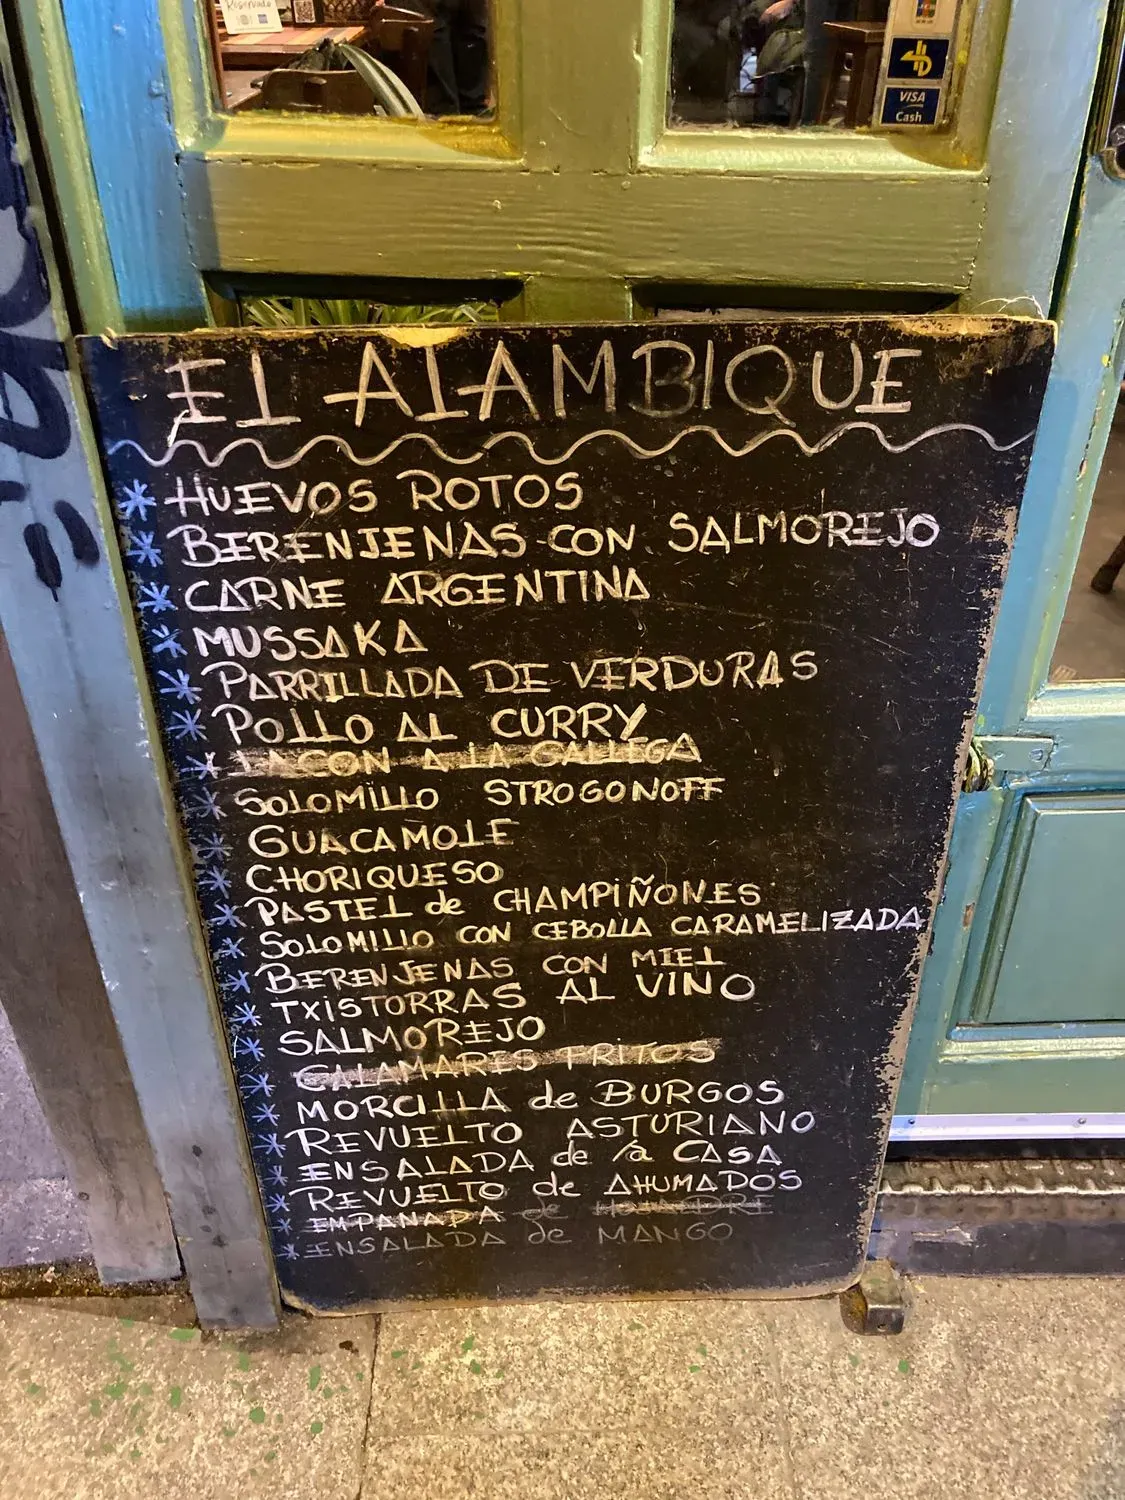 Reservado
VISA
Cash
EL ALAMBIQUE
* HUEVOS ROTOS
* BERENJENAS CON SALMOREJO
* CARNE ARGENTINA
* MUSSAKA
* PARRILLADA DE VERDURAS
* POLLO AL CURRY
* LACON A LA GALLEGA
* SOLOMILLO STROGONOFF
* GUACAMOLE
* CHORIQUESO
* PASTEL de CHAMPIÑONES
* SOLOMILLO CON CEBOLLA CARAMELIZADA
* BERENJENAS CON MIEL
* TXISTORRAS AL VINO
* SALMOREJO
* CALAMARES FRITOS
* MORCILLA de BURGOS
* REVUELTO ASTURIANO
* ENSALADA de la CASA
* REVUELTO de AHUMADOS
* EMPANADA de
* ENSALADA de MANGO